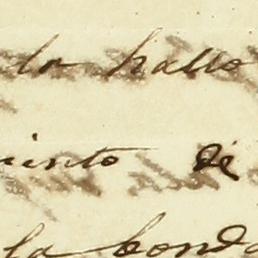 lo hallo
uinto de
la bonda